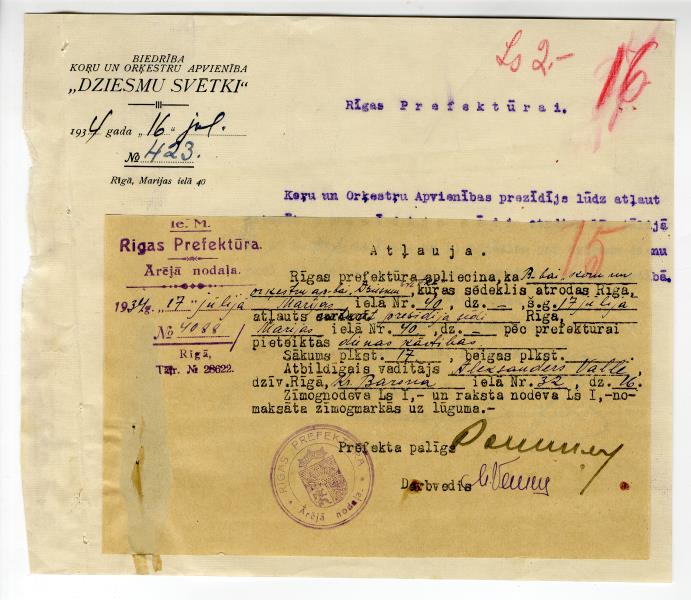 BIEDRĪBA
KOŖU UN ORĶESTRU APVIENĪBA
„DZIESMU SVĒTKI“
1934 gada „16“ jul.
№ 423.
Rīgā, Marijas ielā 40
Ls 2.-
16
Rīgas Prefektūrai.
Koŗu un Orķestŗu Apvienības prezīdijs lūdz atļaut
15
Ie. M.
Rīgas Prefektūra.
Ārējā nodaļa.
1934g. "17" jūlijā
№ 4088
Rīgā,
Tālr. № 28622.
Atļauja.
Rīgas prefektūra apliecina, ka B-bai, koŗu un
orķestru apv-ba, "Dziesmu svētki", kuŗas sēdeklis atrodas Rīgā,
Marijas ielā Nr. 40, dz. – š.g. 17 jūlijā
atļauts prezidija sēdi Rīgā,
Marijas ielā Nr. 40, dz. – pēc prefektūrai
pieteiktās dienas kārtības.
Sākums plkst. 17, beigas plkst.
Atbildīgais vadītājs Aleksanders Valle,
dzīv. Rīgā, Kr. Barona ielā Nr. 32, dz. 16.
Zīmognodeva Ls I,- un raksta nodeva Ls I,-no-
maksāta zīmogmarkās uz lūguma.-
Prefekta palīgs
Darbvedis
RĪGAS PREFEKTŪRA
Ārējā nodaļa.